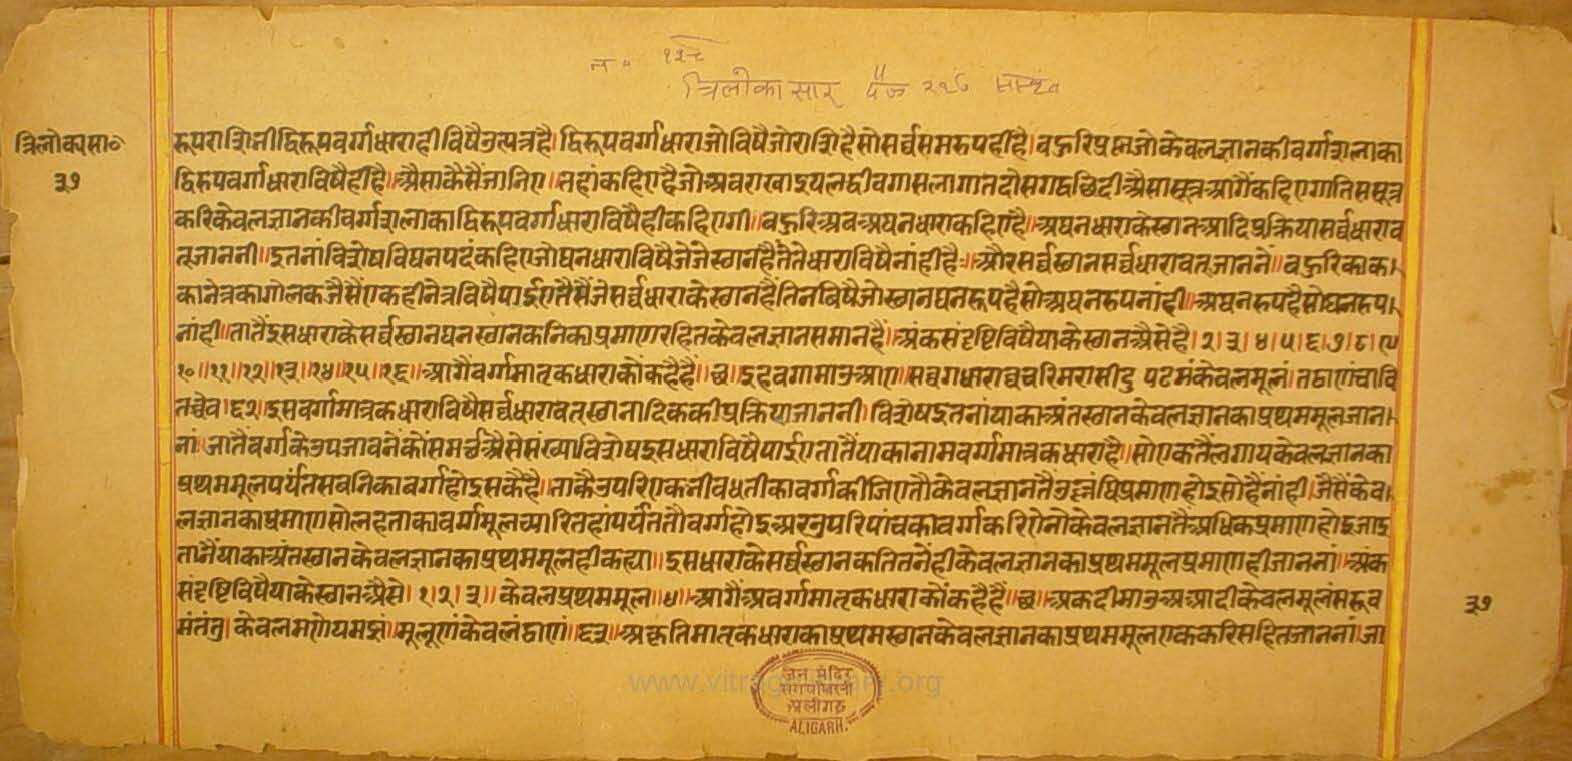 न० १२८
त्रिलोका सार
त्रिलोकासा०
३७
रूपराशिनी द्विरूपवर्गधाराही विषै उत्पन्न है। द्विरूपवर्गधारा जो विषै जो राशि है सो सर्व्व समरूपही है। बहुरि प्र जो केवलज्ञानकी वर्गशलाका
द्विरूपवर्गधारा विषै ही है॥ अैसा कैसैं जानिए॥ तहां कहिए है जो अवरा खाइयलद्वीवगासलागा तदो सगद्वछिदी अैसा सूत्र आगैं कहिएगा तिस सूत्र
करि केवलज्ञानकी वर्गशलाका द्विरूपवर्गधारा विषै ही कहिएगी॥ बहुरि अब अघनधारा कहिए है॥ अघनधाराके स्थान आदि प्रक्रिया सर्व्वधाराव
त् जाननी॥ इतनां विशेष विघनपदं कहिए जो घनधारा विषै जे जे स्थान हैं ते ते धारा विषै नांही है॥ और सर्व्वस्थान सर्व्वधारावत् जानने॥ बहुरि काका
का नेत्रका गोलक जैसैं एकही नेत्र विषै पाईए तैसैं जे सर्व्वधाराके स्थान हैं तिन विषै जो स्थान घनरूप है सो अघनरूप नांही॥ अघनरूप है सो घनरूप
नांही॥ तातैं इस धाराके सर्व्वस्थान घनस्थानकनिका प्रमाण रहित केवलज्ञान समान हैं॥ अंकसंदृष्टि विषै याके स्थान अैसे है। २। ३। ४। ५। ६। ७। ८। ९
१०॥ ११॥ १२॥ १३॥ १४॥ १५॥ १६॥ आगैं वर्गमातृकधाराकों कहै हैं॥ छ॥ इह वगामाउआए॥ सव्वगधाराव्व चरिमरासी दु पढमं केवलमूलं। तठाणं चावि
तच्चेव। ६२। इस वर्गमात्रकधारा विषै सर्व्वधारावत् स्थानादिककी प्रक्रिया जाननी। विशेष इतनां याका अंतस्थान केवलज्ञानका प्रथममूल जान
नां। जातैं वर्गके उपजावनेंकों समर्थ अैसे संख्याविशेष इस धारा विषै पाईए तातैं याका नाम वर्गमात्रकधारा है॥ सो एकतैं लगाय केवलज्ञानका
प्रथममूल पर्यंत सबनिका वर्ग होइ सकै है॥ ताकै उपरि एक नी वधतीका वर्ग कीजिए तौ केवलज्ञानतैं उलंघि प्रमाण होइ सो है नांही। जैसैं केव
लज्ञानका प्रमाण सोलह ताका वर्गमूल च्यारि तहां पर्यंत तौ वर्ग होइ अर उपरि पांचका वर्ग करिए तो केवलज्ञानतैं अधिक प्रमाण होइ जाइ
तातैं याका अंतस्थान केवलज्ञानका प्रथममूलही कह्या॥ इस धाराके सर्व्वस्थानक तितनेंही केवलज्ञानका प्रथममूल प्रमाण ही जाननां॥ अंक
संदृष्टि विषै याके स्थान अैसे। १। २। ३॥ केवल प्रथममूल॥ ४॥ आगैं अवर्गमातृकधाराकों कहै हैं॥ छ॥ अकदीमाउअआदी केवलमूलं सरूव
मंतं तु। केवलमणेयमझं॥ मूलूणं केवलं ठाणं॥ ६३॥ अकृतिमातृकधाराका प्रथमस्थान केवलज्ञानका प्रथममूल एक करि सहित जाननां। जा
३७
जैन मंदिर
अलीगढ
ALIGARH.
www.vitragvani.org